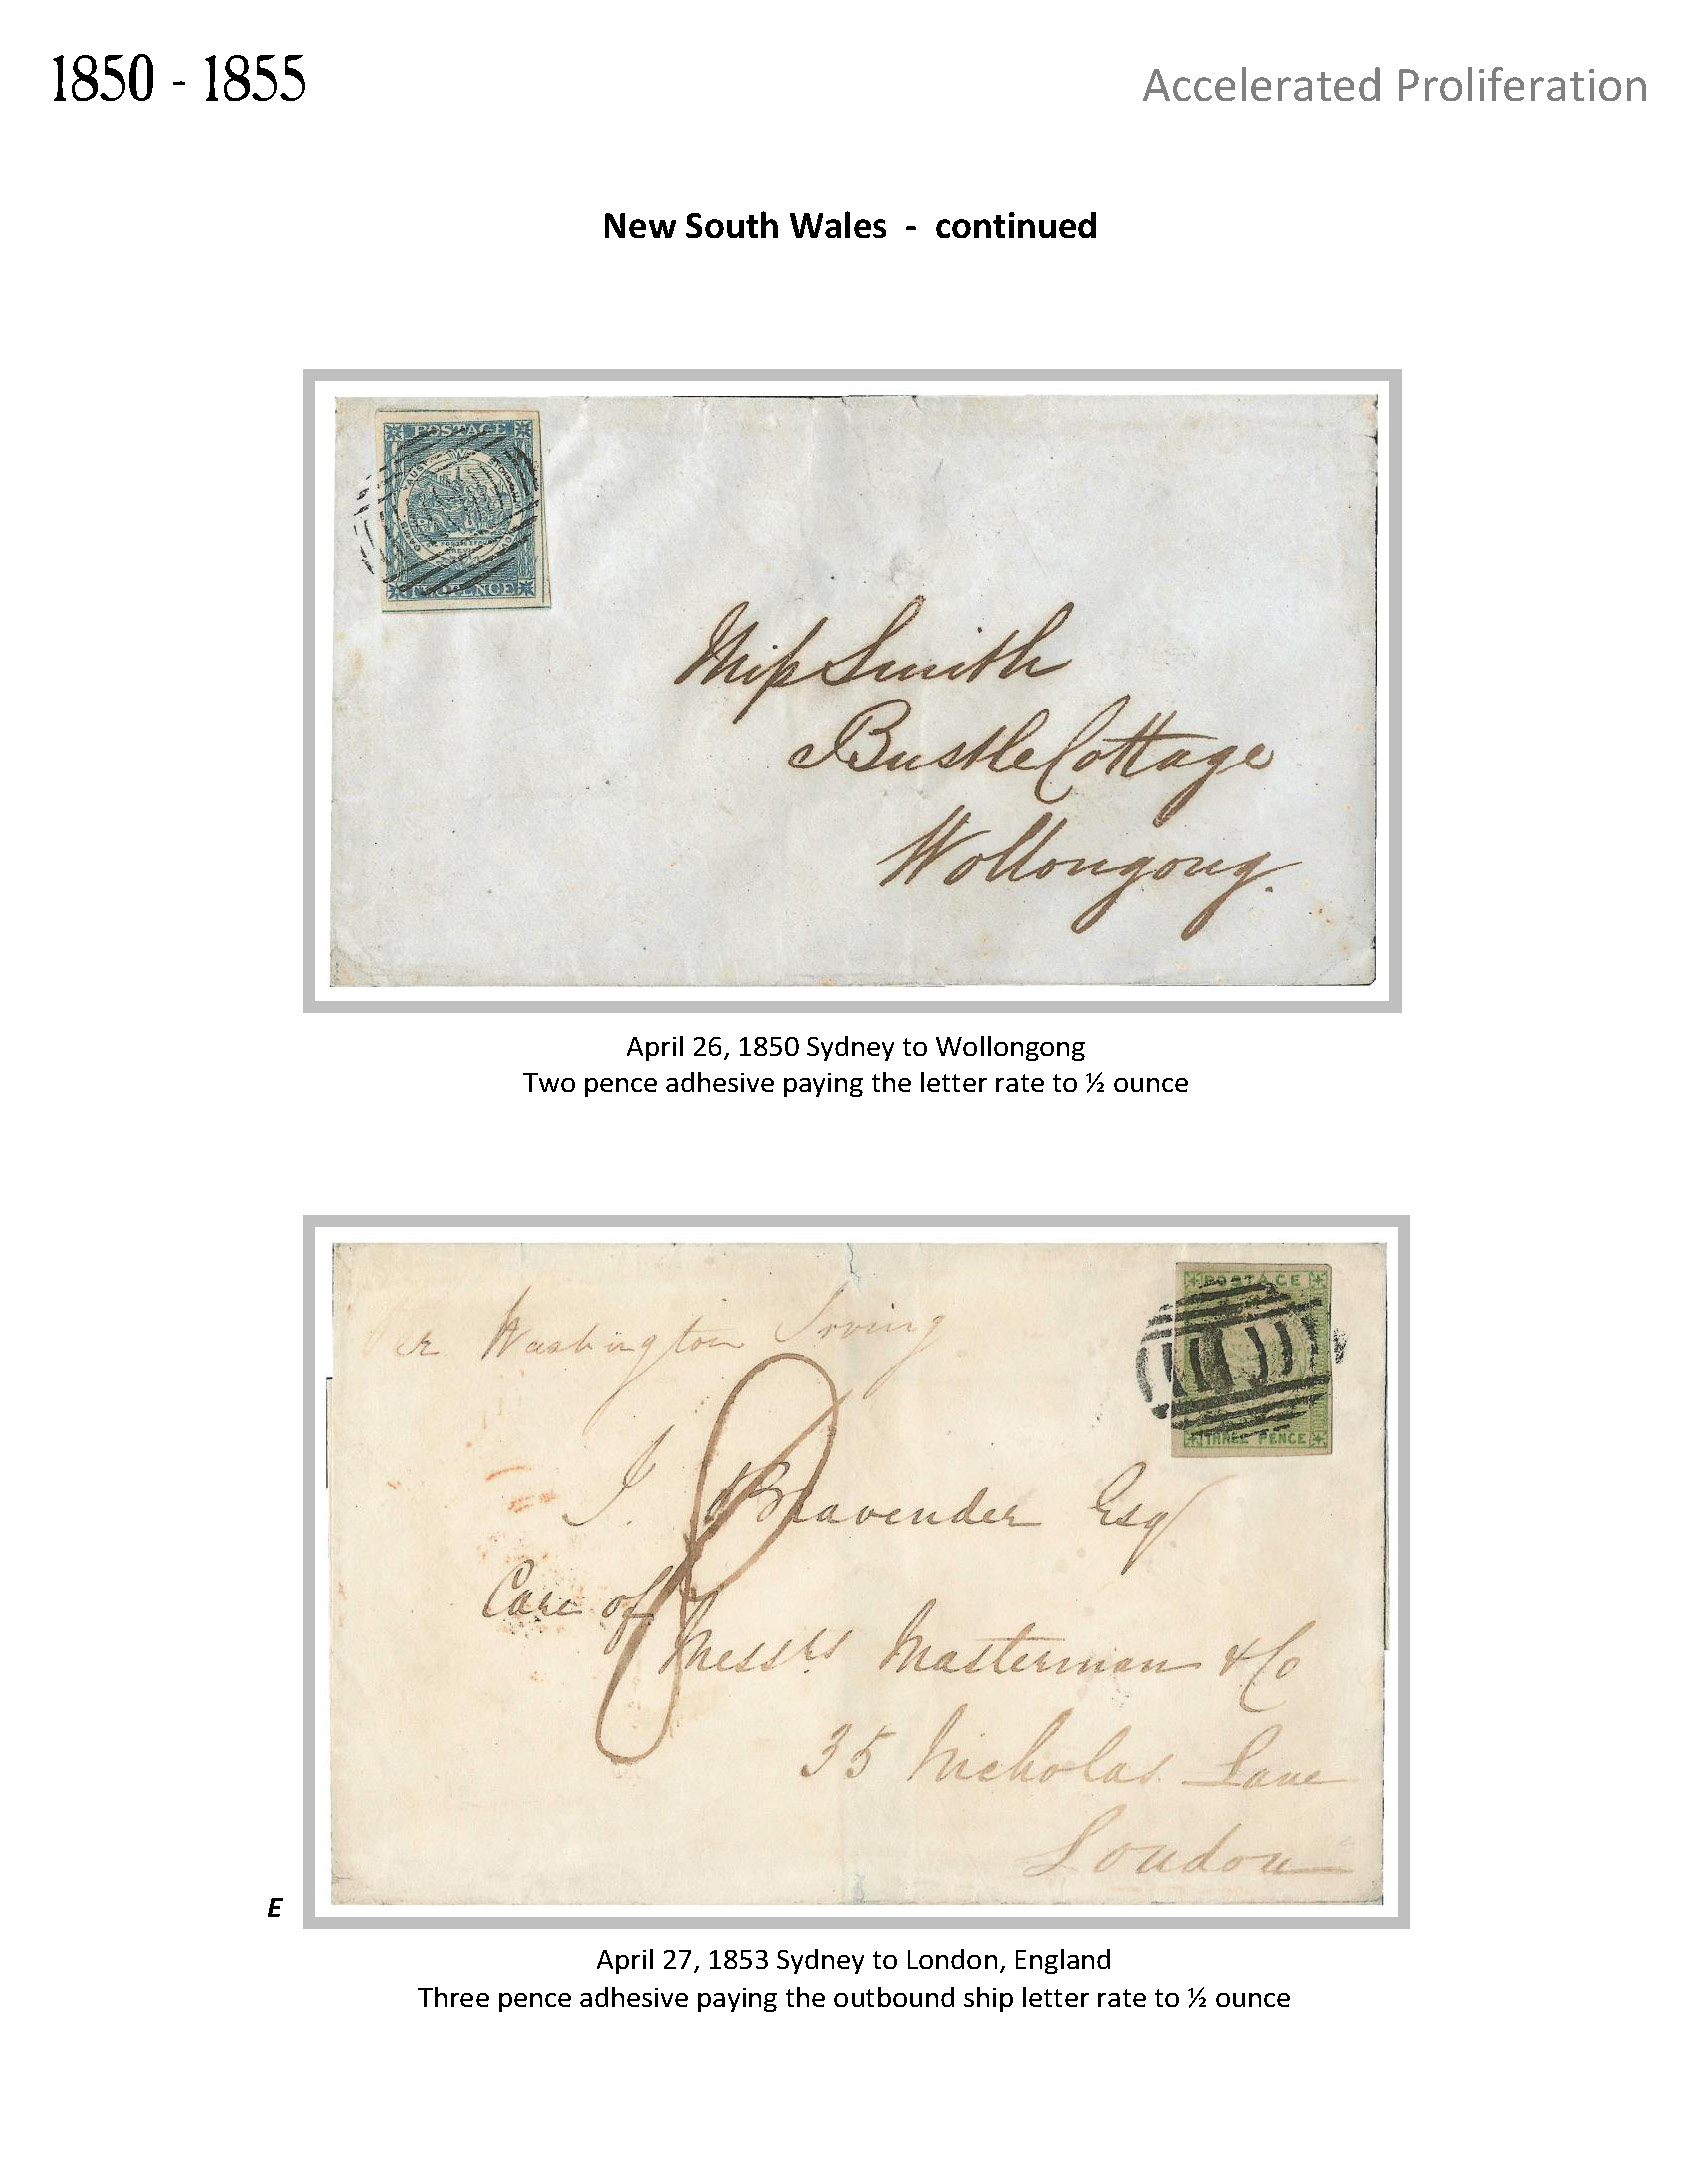 1850 - 1855
Accelerated Proliferation
New South Wales - continued
POSTAGE
TWO PENCE
Miss Smith
Bustle Cottage
Wollongong.
April 26, 1850 Sydney to Wollongong
Two pence adhesive paying the letter rate to ½ ounce
Per Washington Irving
POSTAGE
THREE PENCE
8
J. Bravender Esq
Care of
Messrs Masterman & Co
35 Nicholas Lane
London
E
April 27, 1853 Sydney to London, England
Three pence adhesive paying the outbound ship letter rate to ½ ounce